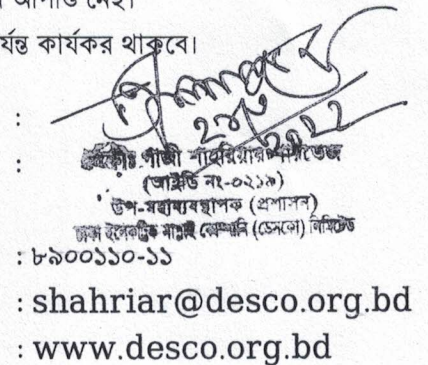 আপত্তি নেই।
র্যন্ত কার্যকর থাকবে।
:
২৮/৬
২০২২
: গাজী শাহরিয়ার পারভেজ
(আইডি নং-০২১৯)
উপ-মহাব্যবস্থাপক (প্রশাসন)
ঢাকা ইলেকট্রিক সাপ্লাই কোম্পানি (ডেসকো) লিমিটেড
: ৮৯০০১১০-১১
: shahriar@desco.org.bd
: www.desco.org.bd